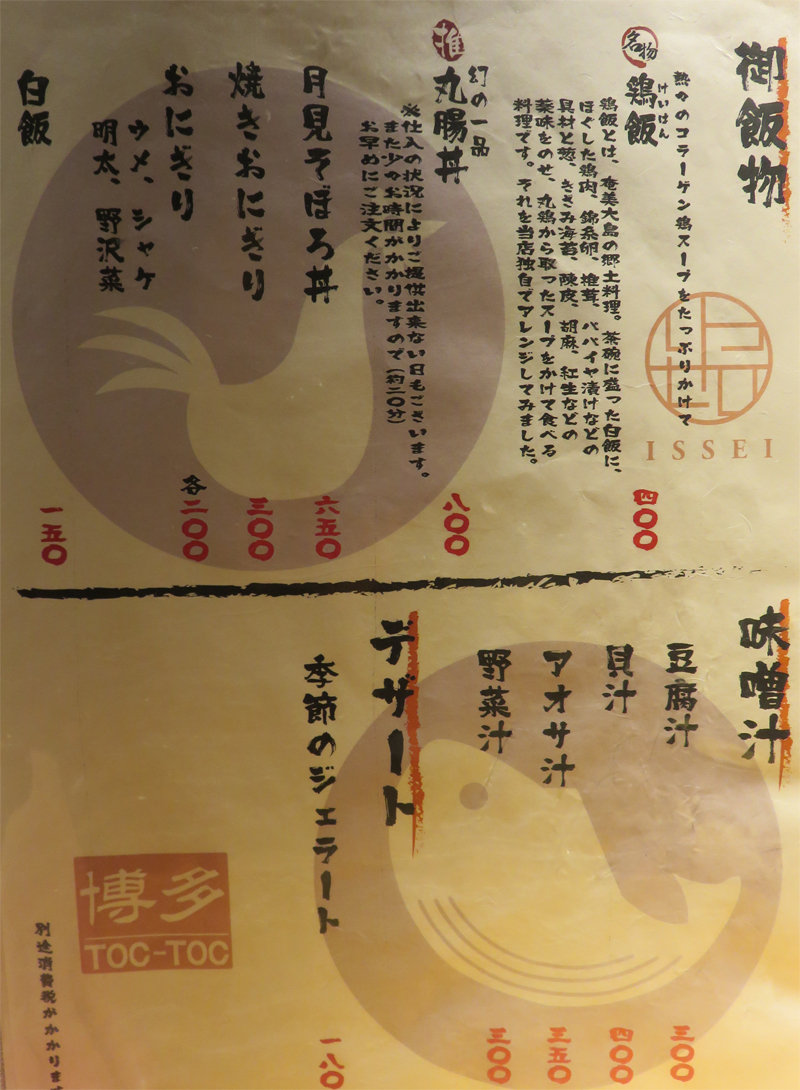 御飯物
熱々のコラーゲン鶏スープをたっぷりかけて
名物
鶏飯
けいはん
四〇〇
鶏飯とは、奄美大島の郷土料理。茶碗に盛った白飯に、
ほぐした鶏肉、錦糸卵、椎茸、パパイヤ漬けなどの
具材と葱、きざみ海苔、陳皮、胡麻、紅生などの
薬味をのせ、丸鶏から取ったスープをかけて食べる
料理です。それを当店独自でアレンジしてみました。
推
幻の一品
丸腸丼
八〇〇
※仕入の状況によりご提供出来ない日もございます。
また少々お時間がかかりますので(約二〇分)
お早めにご注文ください。
月見そぼろ丼
六五〇
焼きおにぎり
三〇〇
おにぎり
各二〇〇
ウメ、シャケ
明太、野沢菜
白飯
一五〇
ISSEI
味噌汁
豆腐汁
三〇〇
貝汁
四〇〇
アオサ汁
三五〇
野菜汁
三〇〇
デザート
季節のジェラート
一八〇
博多
TOC-TOC
別途消費税がかかります